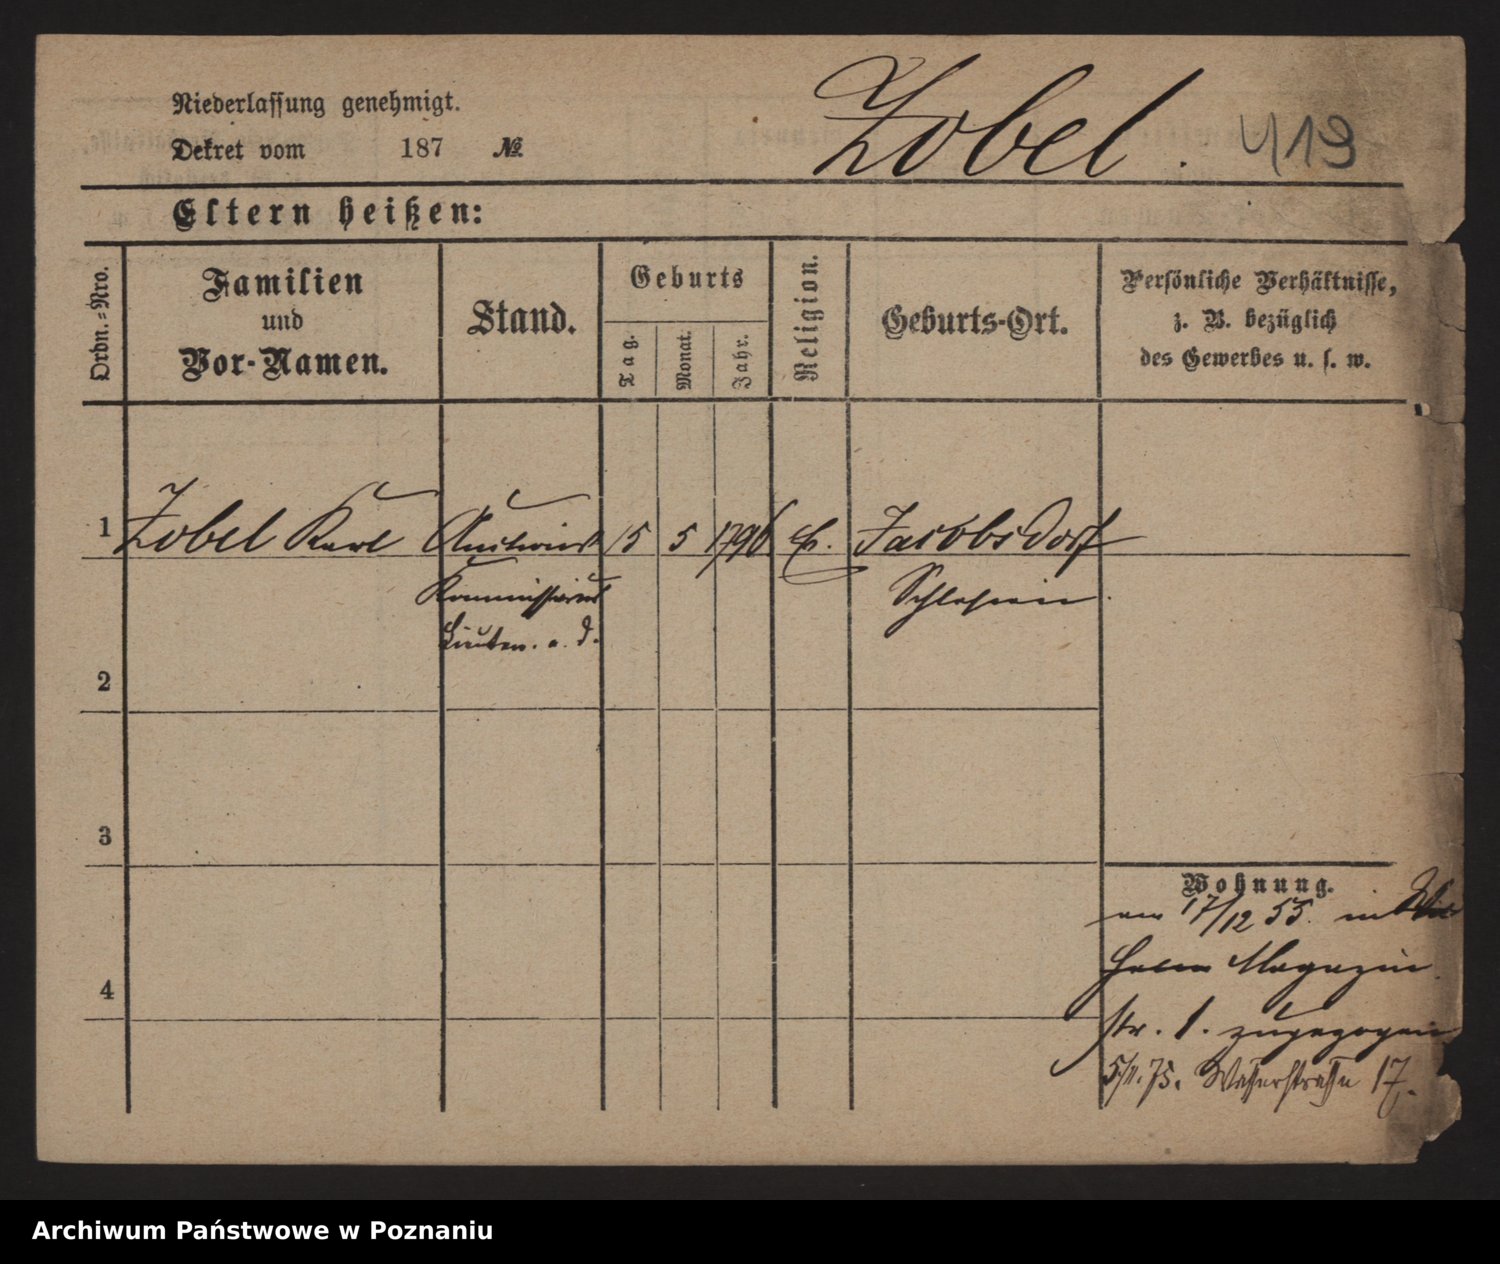 Niederlassung genehmigt.
Dekret vom 187 №
Zobel. 419
Eltern heißen:
Ordn.=Nro.
Familien
und
Vor-Namen.
Stand.
Geburts
Tag.
Monat.
Jahr.
Religion.
Geburts-Ort.
Persönliche Verhältnisse,
z. B. bezüglich
des Gewerbes u. s. w.
1 Zobel Karl 15 5 1796 E. Jacobsdorf
Kommissarius Schlesien
Lieuten. a. D.
2
3
4
Wohnung.
am 17/12 55. in
Magazin
str. 1. zugezogen
5/11. 75. Wasserstraße 17.
Archiwum Państwowe w Poznaniu